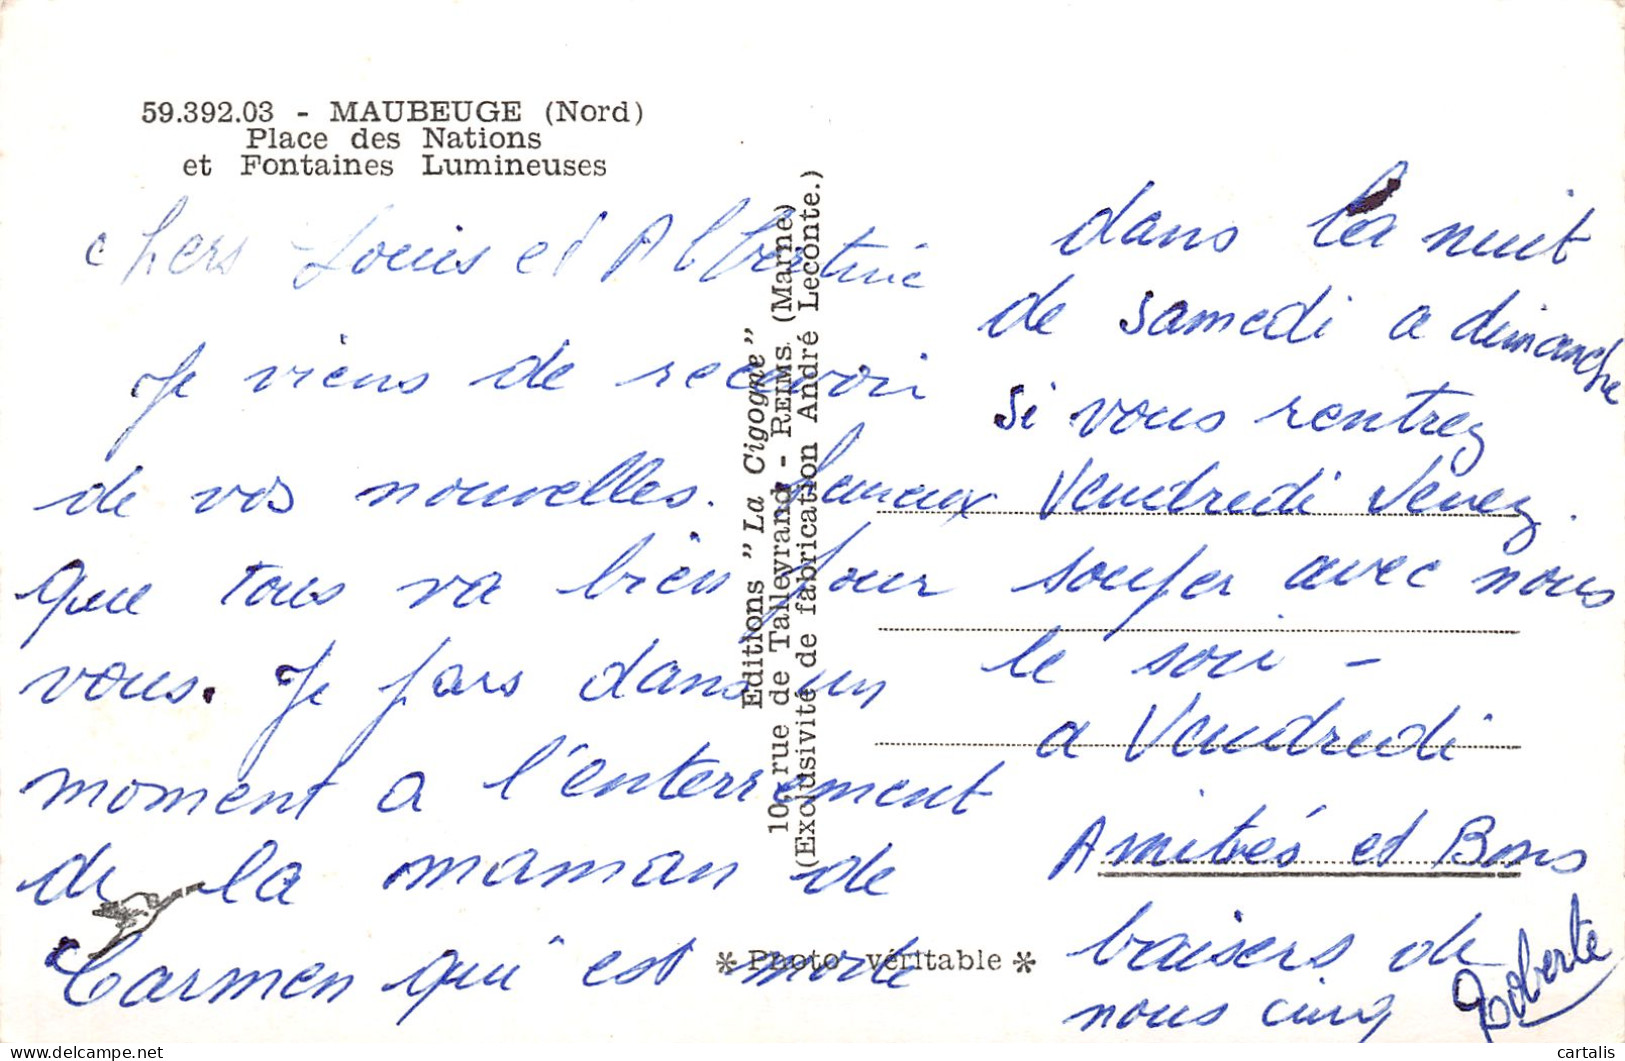 59.392.03 - MAUBEUGE (Nord)
Place des Nations
et Fontaines Lumineuses
chers Louis et Albertine
Je viens de recevoir
de vos nouvelles. heureux
que tous va bien pour
vous. Je pars dans un
moment a l'enterrement
de la maman de
Carmen qui est morte
Editions "La Cigogne"
10, rue de Talleyrand - REIMS (Marne)
(Exclusivité de fabrication André Leconte.)
* Photo véritable *
dans la nuit
de samedi a dimanche
si vous rentrez
Vendredi Venez
souper avec nous
le soir -
a Vendredi
Amitiés et Bons
baisers de
nous cinq
Roberte
cartalis